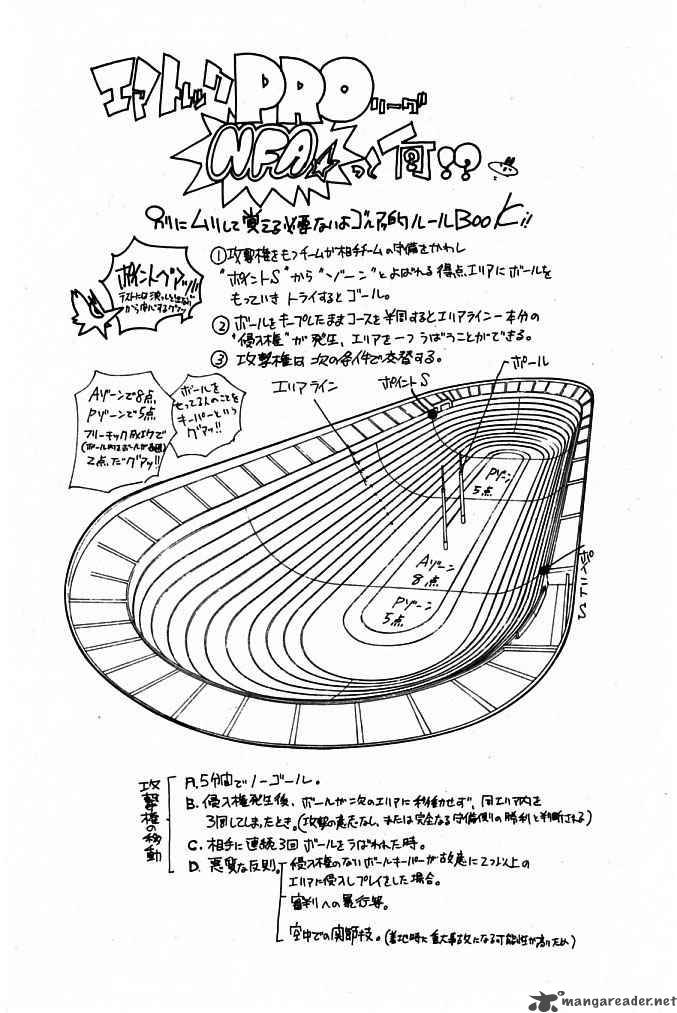 エアトレック PRO リーグ
NFA☆って何!?
別にムリして覚える必要ないよ ゴルァ的ルールBOOK!!
①攻撃権をもつチームが相手チームの守備をかわし
"ポイントS"から"ゾーン"とよばれる得点エリアにボールを
もっていきトライするとゴール。
②ボールをキープしたままコースを半周するとエリアライン一本分の
"侵入権"が発生、エリアを一つうばうことができる。
③攻撃権は次の条件で交替する。
ポイントグアッ!!
テストには
Aゾーンで8点
Pゾーンで5点
フリーキック
2点だグアッ!!
ボールを
もってる人のことを
キーパーという
グアッ!!
エリアライン
ポイントS
ポール
Pゾーン
5点
Aゾーン
8点
Pゾーン
5点
ポイントS
攻撃権の移動
A. 5分間でノーゴール。
B. 侵入権発生後、ボールが次のエリアに移動せず、同エリア内を
3回してしまったとき。(攻撃の意志なし、または完全なる守備側の勝利と判断される)
C. 相手に連続3回ボールをうばわれた時。
D. 悪質な反則。
侵入権のないボールキーパーが故意に2つ以上の
エリアに侵入しプレイをした場合。
審判への暴行等。
空中での関節技。(着地時に重大事故になる可能性が高いため)
mangareader.net